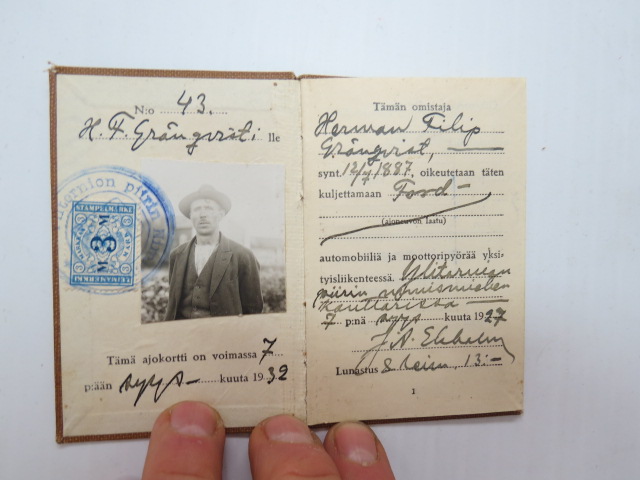 N:o 43.
H. F. Gränqvist i lle
STAMPELMÄRKE
M 3 M
LEIMAMERKKI
Tämä ajokortti on voimassa 7
p:ään syys- kuuta 1932
Tämän omistaja
Herman Filip
Gränqvist,
synt. 1887, oikeutetaan täten
kuljettamaan Ford
(ajoneuvon laatu)
automobiiliä ja moottoripyörää yksi-
tyisliikenteessä. Ylitornion
piirin nimismiehen
konttorissa
7 p:nä syys kuuta 1927
Lunastus & leim., 13:-
1